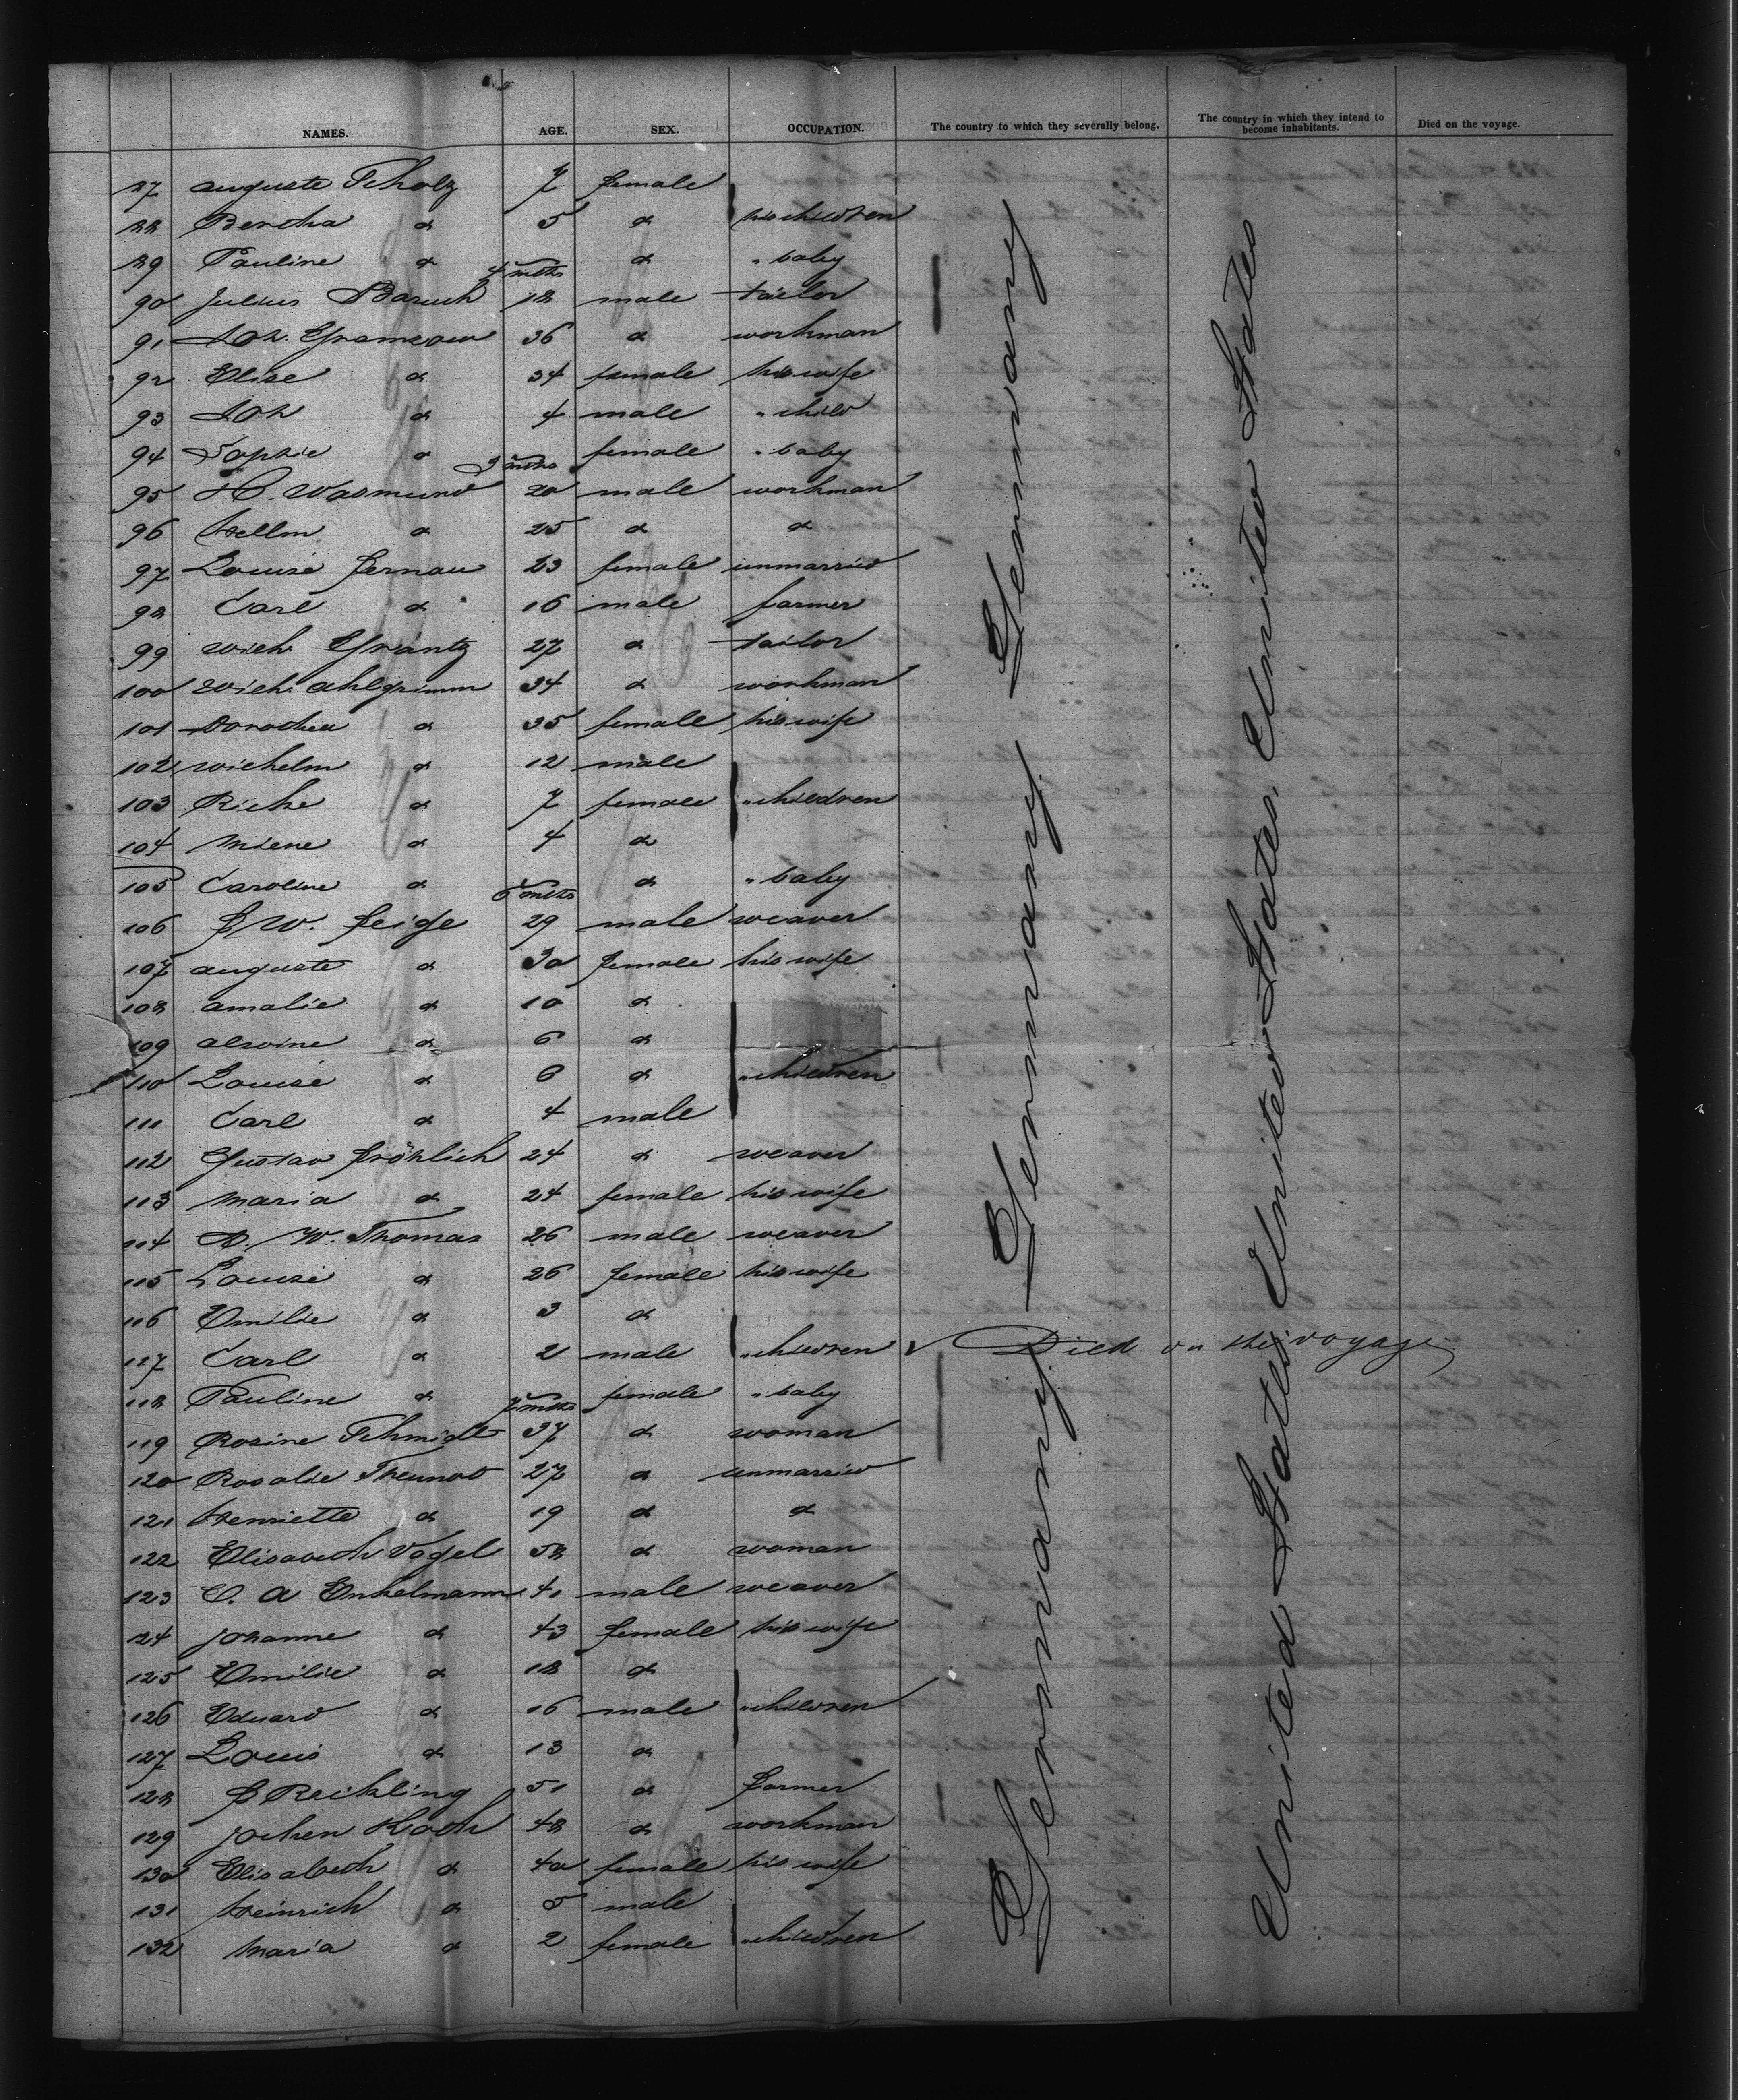 NAMES. AGE. SEX. OCCUPATION. The country to which they severally belong. The country in which they intend to become inhabitants. Died on the voyage.
87 auguste Scholz 7 female
88 Bertha do 5 do his children
89 Pauline do 4 mths do " baby
90 Julius Baruch 18 male tailor
91 Joh. Gramzow 36 do workman
92 Elise do 34 female his wife
93 Joh do 4 male " child
94 Sophie do 9 mths female " baby
95 H. Wasmund 20 male workman
96 Hellm do 25 do do
97 Louise Fernau 23 female unmarried
98 Carl do 16 male farmer
99 Wilh. Gräntz 27 do tailor
100 Wilh. Ahlgrimm 34 do workman
101 Dorothea do 35 female his wife
102 Wilhelm do 12 male
103 Rieke do 7 female " children
104 Miene do 4 do
105 Caroline do 6 mths do " baby
106 F. W. Feige 29 male weaver
107 auguste do 30 female his wife
108 amalie do 10 do
109 alwine do 6 do
110 Louise do 6 do " children
111 Carl do 4 male
112 Gustav Fröhlich 24 do weaver
113 Maria do 24 female his wife
114 A. W. Thomas 26 male weaver
115 Louise do 26 female his wife
116 Emilie do 3 do
117 Carl do 2 male " children Died on the voyage
118 Pauline do 7 mths female " baby
119 Rosine Schmidt 37 do woman
120 Rosalie 27 do unmarried
121 Henriette do 19 do do
122 Elisabeth Vogel 58 do woman
123 C. A Enkelmann 41 male weaver
124 Johanne do 43 female his wife
125 Emilie do 18 do
126 Eduard do 16 male " children
127 Louis do 13 do
128 F Reichling 51 do farmer
129 Jochen Koch 48 do workman
130 Elisabeth do 40 female his wife
131 Heinrich do 5 male
132 Maria do 2 female " children
Germany Germany Germany Germany
United States United States United States